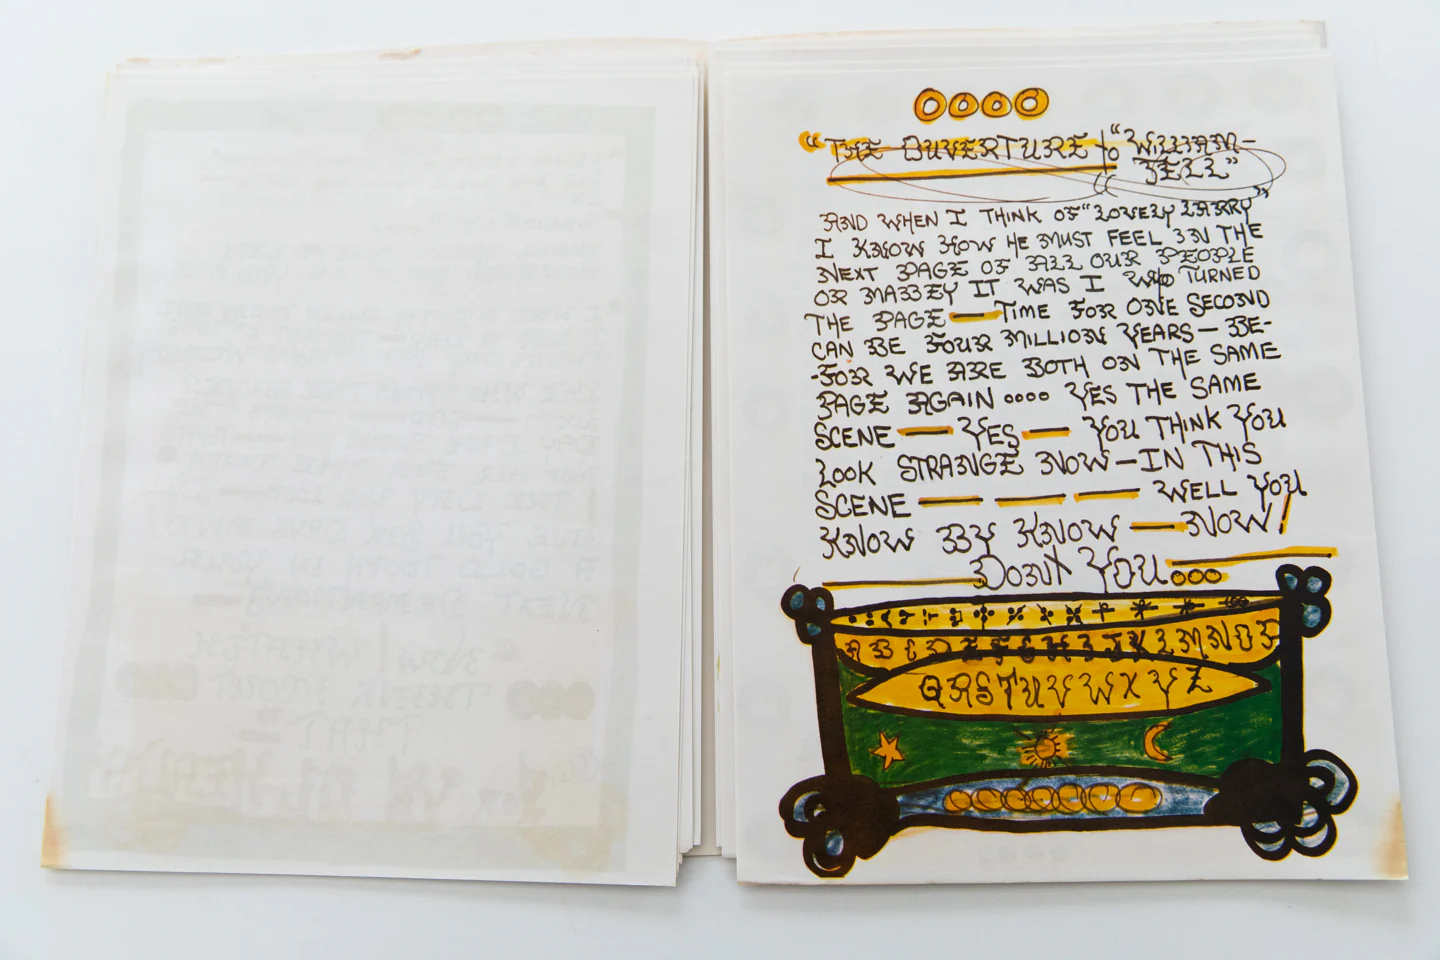 "THE OUVERTURE to "WILLIAM-
TELL"
AND WHEN I THINK OF "LOVELY LARRY"
I KNOW HOW HE MUST FEEL IN THE
NEXT PAGE OF ALL OUR PEOPLE
OR MABBEY IT WAS I WHO TURNED
THE PAGE — TIME FOR ONE SECOND
CAN BE FOUR MILLION YEARS — BE-
-FOR WE ARE BOTH ON THE SAME
PAGE AGAIN .... YES THE SAME
SCENE — YES — YOU THINK YOU
LOOK STRANGE NOW — IN THIS
SCENE — — — WELL YOU
KNOW BY KNOW — NOW!
DONT YOU...
A B C D E F G H I J K L M N O P
Q R S T U V W X Y Z